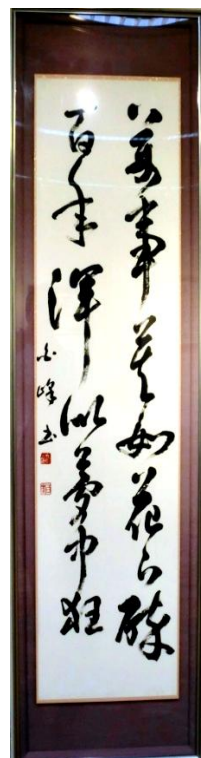 萬事莫如花下醉
百年渾似夢中狂
峰書